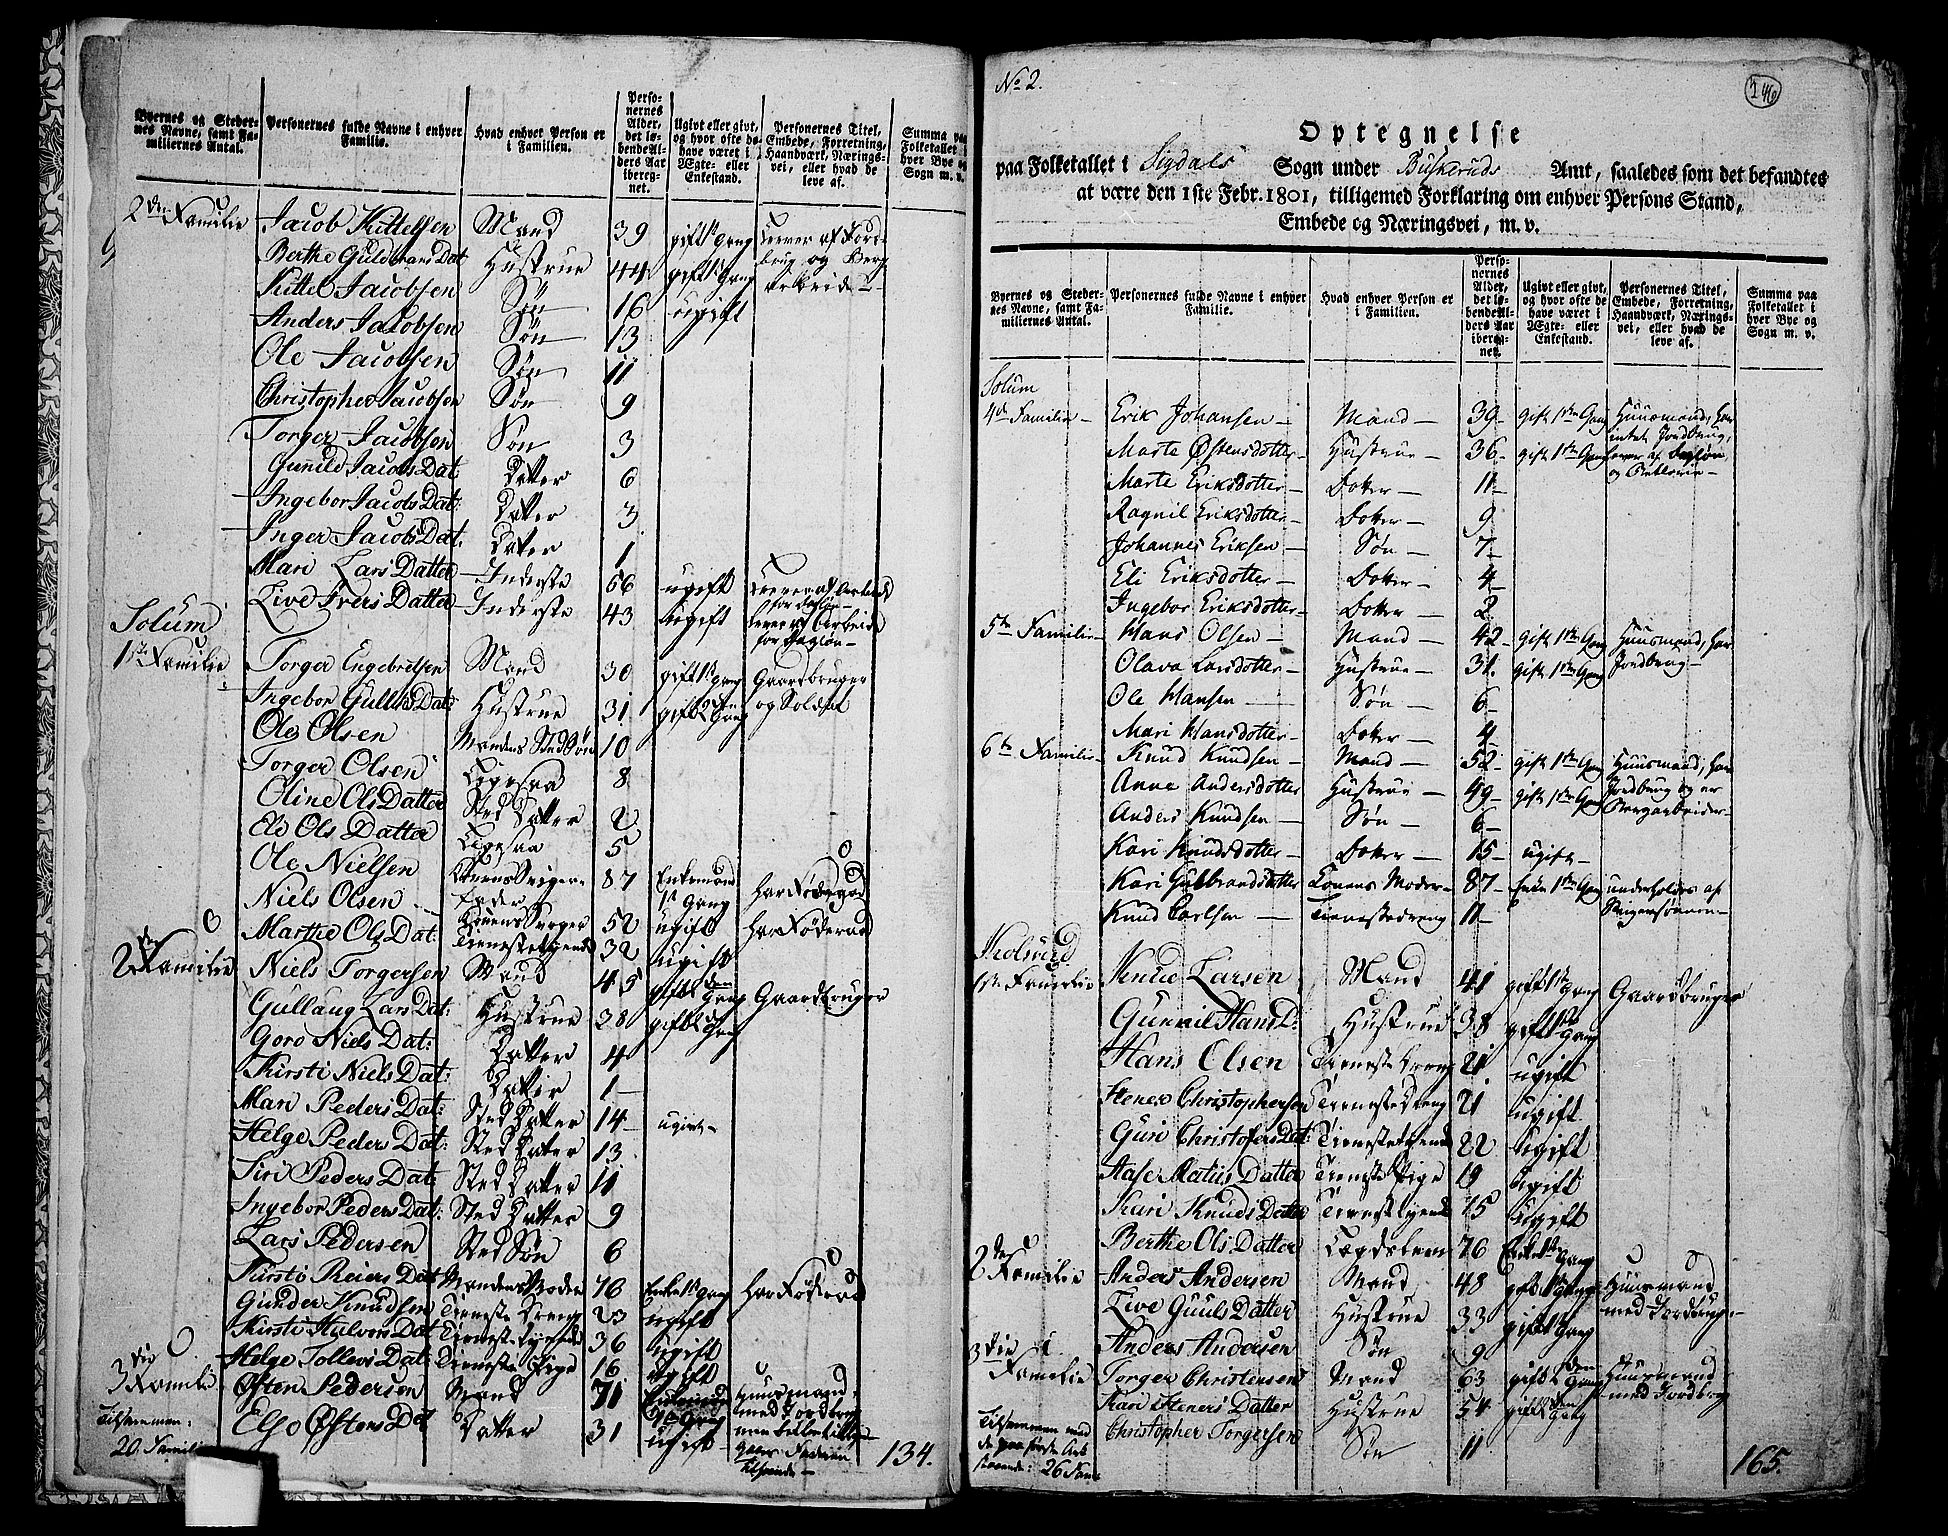 Byernes og Stedernes Navne, samt Familiernes Antal.
Personernes fulde Navne i enhver Familie.
Hvad enhver Person er i Familien.
Personernes Alder, det løbende Alders Aar iberegnet.
Ugivt eller givt, og hvor ofte de have været i Ægte- eller Enkestand.
Personernes Titel, Embede, Forretning, Haandværk, Næringsvei, eller hvad de leve af.
Summa paa Folketallet i hver Bye og Sogn m. v.
2den Familie Jacob Kittelsen Mand 39 gift 1ste Gang
Berthe GuldbransDat Hustrue 44 gift 1 Gang
Kittel Jacobsen Søn 16 ugift
Anders Jacobsen Søn 13
Ole Jacobsen Søn 11
Christopher Jacobsen Søn 9
Torger Jacobsen Søn 3
Gunild JacobsDat: Datter 6
Ingebor JacobsDat: Datter 3
Inger JacobsDat: Datter 1
Mari Lars Datter Inderste 56 ugift Lever af Arbeide for Dagløn
Live Ivers Datter Inderste 43 ugift lever af Arbeide for Dagløn
Solum
1ste Familie Torger Engebretsen Mand 30 gift 1ste Gang Gaardbruger og Soldat
Ingebor GullvsDat: Hustrue 31 gift 2den Gang
Ole Olsen Mandens StedSøn 10
Torger Olsen Ligesaa 8
Oline OlsDatter Sted Datter 2
Eli Ols Datter Ligesaa 5
Ole Nielsen Konens Sviger Fader 87 Enkemand 1ste Gang Har Føderaad
Niels Olsen Konens Svoger 52 ugift Har Føderaad
Marthe OlsDat: Tienestetyende 32 ugift
2den Familie Niels Torgersen Mand 45 gift 1 Gang Gaardbruger
Gullaug LarsDat: Hustrue 38 gift 2den Gang
Goro Niels Dat: Datter 4
Kirsti Niels Dat: Datter 1
Mari Peders Dat: Sted Datter 14 ugivt
Helge Peders Dat: Sted Datter 13
Siri Peders Dat: Sted Datter 11
Ingebor Peders Dat: Sted Datter 9
Lars Pedersen Sted Søn 6
Kirsti Reiers Dat Mandens Moder 76 Enke 1ste Gang Har Føderaad
Gunder Knudsen Tieneste Dreng 23 ugift
Kirsti Halvors Dat Tieneste tyende 36 ugift
Helge Tollevs Dat: Tieneste Pige 16 ugift
3die Familie Østen Pedersen Mand 71 Enkemand Huusmand med Jordbrug
Else Østens Dat Datter 31 ugift
Tilsammen: 20 Familier
134.
No 2.
246
Optegnelse
paa Folketallet i Sigdals Sogn under Buskeruds Amt, saaledes som det befandtes
at være den 1ste Febr. 1801, tilligemed Forklaring om enhver Persons Stand,
Embede og Næringsvei, m. v.
Byernes og Stedernes Navne, samt Familiernes Antal.
Personernes fulde Navne i enhver Familie.
Hvad enhver Person er i Familien.
Personernes Alder, det løbende Alders Aar iberegnet.
Ugivt eller givt, og hvor ofte de have været i Ægte- eller Enkestand.
Personernes Titel, Embede, Forretning, Haandværk, Næringsvei, eller hvad de leve af.
Summa paa Folketallet i hver Bye og Sogn m. v.
Solum
4de Familie Erik Johansen Mand 39 gift 1ste Gang Huusmand, har intet Jordbrug, lever af Dagløn
Marte Østensdotter Hustrue 36 gift 1ste Gang
Marte Eriksdotter Dotter 11
Ragnil Eriksdotter Dotter 9
Johannes Eriksen Søn 7
Eli Eriksdotter Dotter 4
Ingebor Eriksdotter Dotter 2
5te Familie Hans Olsen Mand 42 gift 1ste Gang Huusmand, har Jordbrug
Olava Larsdotter Hustrue 31. gift 1ste Gang
Ole Hansen Søn 6
Mari Hansdotter Dotter 4
6te Familie Knud Knudsen Mand 52 gift 1ste Gang Huusmand, har Jordbrug og er Bergarbeider
Anne Andersdotter Hustrue 49 gift 1ste Gang
Anders Knudsen Søn 6
Kari Knudsdotter Dotter 15 ugift
Kari Gulbrandsdotter Konens Moder 87 Enke 1ste Gang underholdes af Svigersønnen
Knud Carlsen Tienestedreng 11
1ste Familie Larsen Mand 41 gift 1ste Gang Gaardbruger
Gunnil HansD: Hustrue 38 gift 1ste Gang
Hans Olsen Tieneste Dreng 21 ugift
Stener Christophersen Tienestedreng 21 ugift
Guri ChristofersDat: Tienestetyende 22 ugift
Aase Matiis Datter Tieneste Pige 19 ugift
Kari Knuds Datter Tienestetyende 15 ugift
Berthe Ols Datter Lægdslem 76 Enke 1ste Gang
2den Familie Anders Andersen Mand 48 gift 1ste Gang Huusmand med Jordbrug
Live Guuls Datter Hustrue 33 gift 1ste Gang
Anders Andersen Søn 9
3die Familie Torger Christensen Mand 63 gift 2den Gang Huusmand med Jordbrug
Kari Steners Datter Hustrue 54 gift Gang
Christopher Torgersen Søn 11
Tilsammen med de paa første Ark staaende: 26 Fam:
165.